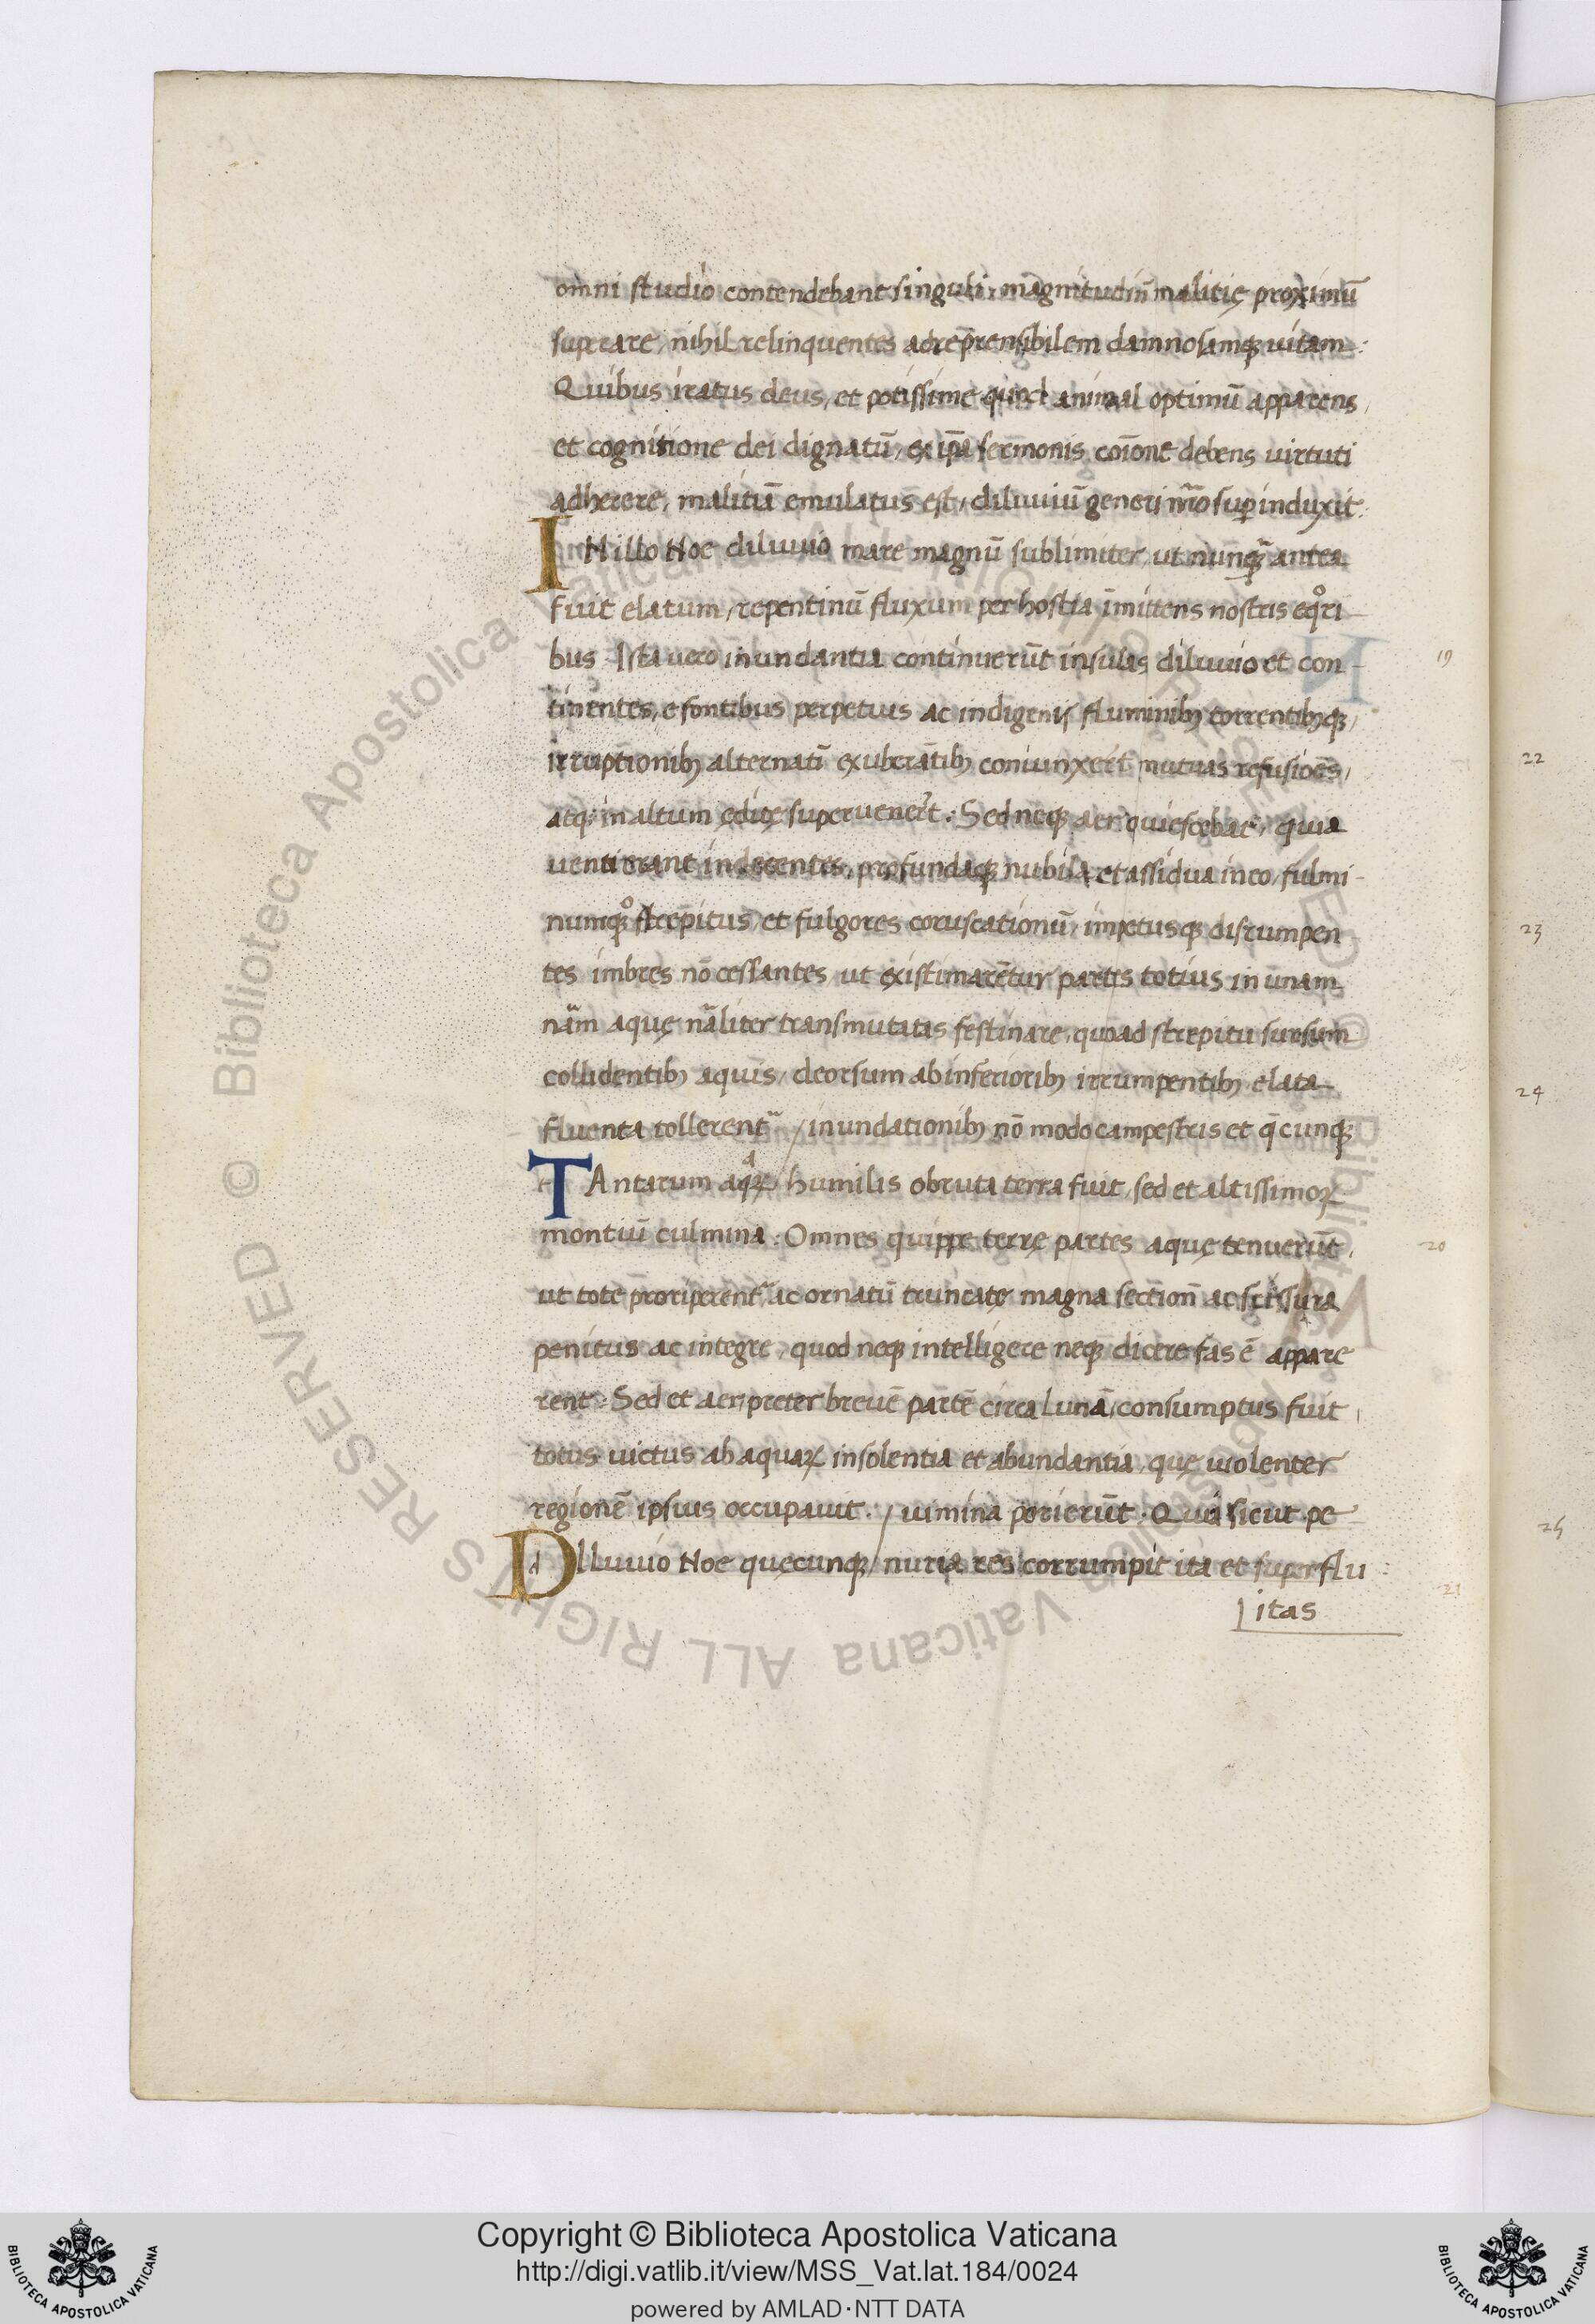 omni studio contendebant singuli, magnitudiñ malitię proximū
superare, nihil relinquentes adrep̄rensibilem damnosamqꝫ uitam:
Quibus iratus deus, et potissime quod animal optimū apparens,
et cognitione dei dignatū, ex ip̄a sermonis cōione debens uirtuti
adherere, malitiā emulatus est, diluuiū generi nr̄o suꝑinduxit:
IN illo Noe diluuio mare magnū sublimiter, ut nunqꝫ̄ antea
fuit elatum, repentinū fluxum per hostia īmittens nostris eqͦri
bus. Ista uero inundantia continuerūt insulas diluuio et con-
tinentes, e fontibus perpetuis ac indigenis fluminibꝫ torrentibꝫqꝫ,
irruptionibꝫ alternatī exuberātibꝫ coniunxerūt mutuas refusiones,
atqꝫ in altum edite superuenert̄. Sed neqꝫ aer quiescebat, quia
uenti erant indecentes, profundaqꝫ nubila et assidua in eo, fulmi-
numqꝫ strepitus, et fulgores coruscationū, impetusqꝫ disrumpen
tes imbres nō cessantes, ut existimarētur partes totius in unam
nām aquę nāliter transmutatas festinare, quoad strepitu sursum
collidentibꝫ aquis, deorsum ab inferioribꝫ irrumpentibꝫ elata
fluenta tollerentᷣ / inundationibꝫ nō modo campestris et q̄cunqꝫ
TAntarum aqᵃꝝ / humilis obruta terra fuit, sed et altissimoꝝ
montiū culmina: Omnes quippe terrę partes aquę tenuerūt,
ut tote proriperentᷣ ac ornatū truncatę magna sectioñ ac scissura
penitus ac integre, quod neqꝫ intelligere neqꝫ dicere fas ē appare
rent: Sed et aer preter breuē partē circa Lunā, consumptus fuit,
totus uictus ab aquaꝝ insolentia et abundantia, quę uiolenter
regionē ipsius occupauit. / uimina perierūt. Qui sicut pe
DIluuio Noe quęcunqꝫ / nuria res corrumpit ita et superflu:
itas
19
22
23
24
20
25
21
Copyright © Biblioteca Apostolica Vaticana
http://digi.vatlib.it/view/MSS_Vat.lat.184/0024
powered by AMLAD·NTT DATA
BIBLIOTECA APOSTOLICA VATICANA
BIBLIOTECA APOSTOLICA VATICANA
© Biblioteca Apostolica Vaticana ALL RIGHTS RESERVED